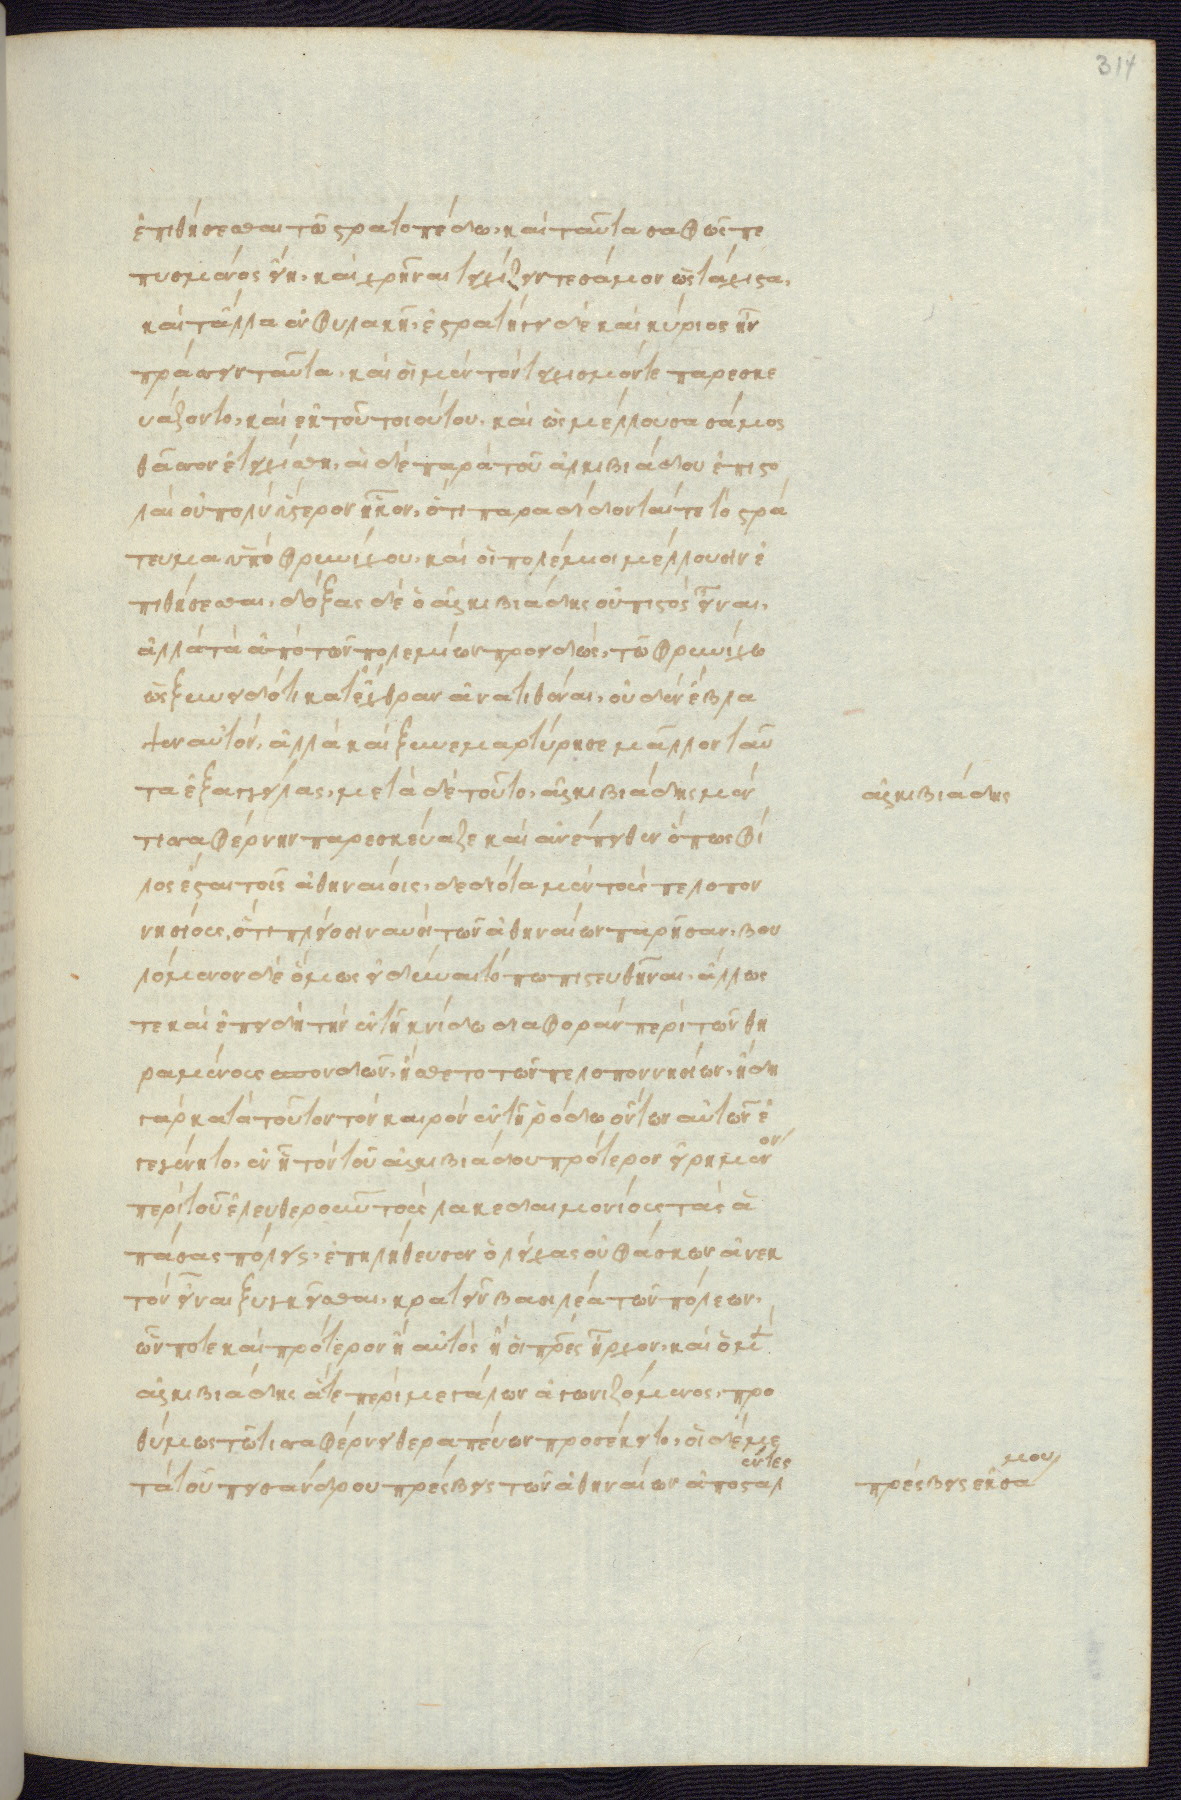 314
ἐπιθήσεσθαι τῶ στρατοπέδω, καὶ ταῦτα σαφῶς πε
πυσμένος εἴη, καὶ χρῆναι τειχίζειν τε σάμον ὡς τάχιστα,
καὶ τἄλλα ἐν φυλακῆ, ἐστρατήγει δὲ καὶ κύριος ἦν
πράσσειν ταῦτα, καὶ οἱ μὲν τὸν τειχισμόν τε παρεσκε
υάζοντο, καὶ ἐκ τοῦ τοιούτου, καὶ ὡς μέλλουσα σάμος
θᾶσσον ἐτειχίσθη, αἱ δὲ παρὰ τοῦ ἀλκιβιάδου ἐπιστο
λαὶ οὐ πολὺ ὕστερον ἧκον, ὅτι προδίδοται τε τὸ στρά
τευμα ὑπὸ φρυνίχου, καὶ οἱ πολέμιοι μέλλουσιν ἐ
πιθήσεσθαι, δόξας δὲ ὁ ἀλκιβιάδης οὐ πιστὸς εἶναι,
ἀλλὰ τὰ ἀπὸ τῶν πολεμίων προειδὼς, τῶ φρυνίχω
ὡς ξυνειδότι κατ' ἔχθραν ἀνατιθέναι, οὐδὲν ἔβλα
ψεν αὐτὸν, ἀλλὰ καὶ ξυνεμαρτύρησε μᾶλλον ταῦ
τα ἐξαγγείλας, μετὰ δὲ τοῦτο, ἀλκιβιάδης μὲν
τισσαφέρνην παρεσκεύαζε καὶ ἀνέπειθεν ὅπως φί
λος ἔσται τοῖς ἀθηναίοις, δεδιότα μὲν τοὺς πελοπον
νησίους, ὅτι πλείοσι ναυσὶ τῶν ἀθηναίων παρῆσαν, βου
λόμενον δὲ ὅμως εἰ δύναιτό πω πιστευθῆναι, ἄλλως
τε καὶ ἐπειδὴ τὴν ἐν τῆ κνίδω διαφορὰν περὶ τῶν θη
ραμένους σπονδῶν, ἤσθετο τῶν πελοποννησίων, ἤδη
γὰρ κατὰ τοῦτον τὸν καιρὸν ἐν τῆ ῥόδω ὄντων αὐτῶν ἐ
γεγένητο, ἐν ᾗ τὸν τοῦ ἀλκιβιάδου πρότερον εἰρημένον
περὶ τοῦ ἐλευθεροῦν τοὺς λακεδαιμονίους τὰς ἁ
πάσας πόλεις, ἐπηλήθευσεν ὁ λίχας οὐ φάσκων ἀνεκ
τὸν εἶναι ξυγκεῖσθαι, κρατεῖν βασιλέα τῶν πόλεων,
ὧν ποτε καὶ πρότερον ἢ αὐτὸς ἢ οἱ πρες ἦρχον, καὶ ὁ μὲν
ἀλκιβιάδης ἅτε περὶ μεγάλων ἀγωνιζόμενος, προ
θύμως τῶ τισσαφέρνει θεραπεύων προσέκειτο, οἱ δὲ με
τὰ τοῦ πεισάνδρου πρέσβεις τῶν ἀθηναίων ἀποσταλέντες
ἀλκιβιάδης
πρέσβεις ἐκ σάμου